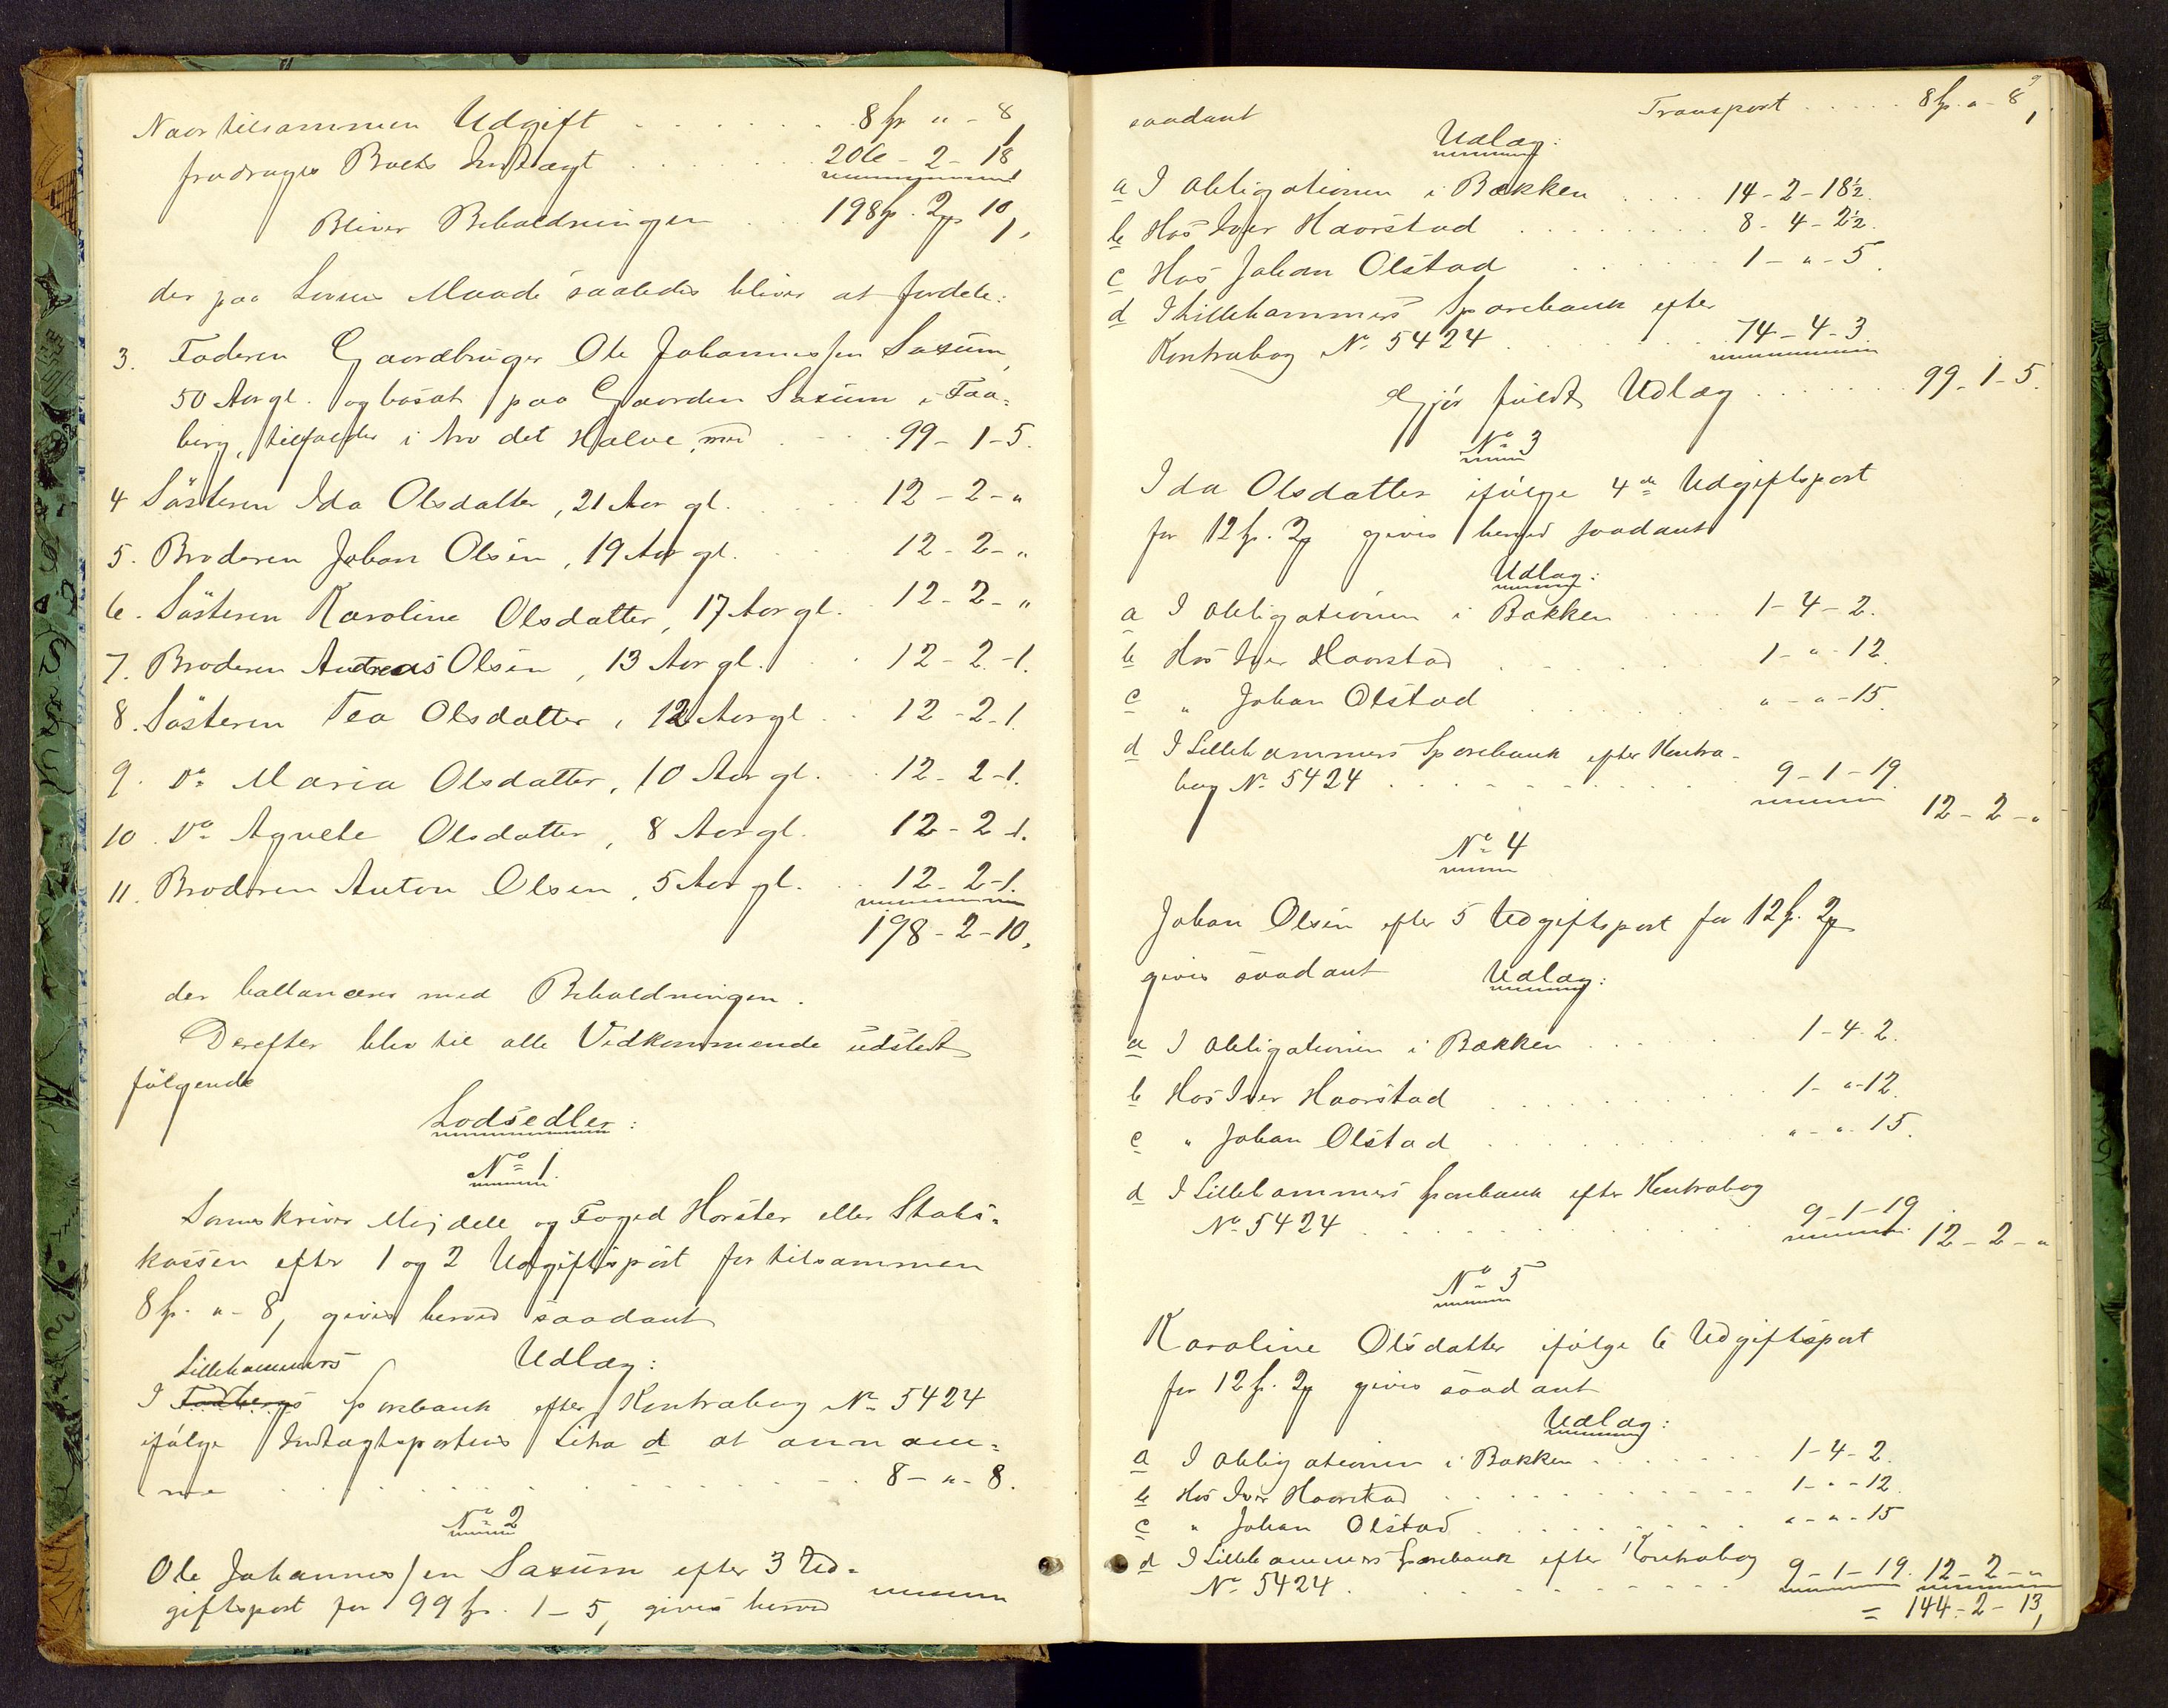 Naar tilsammen Udgift . . . . . . 8 Sp " - 8,
fradrages Boets Indtægt . . . . . . 206 - 2 - 18
Bliver Beholdningen . . . 198 Sp. 2 ₻ 10,
der paa Lovens Maade saaledes bliver at fordele:
3. Faderen Gaardbruger Ole Johannessen Saxum,
50 Aar gl. og bosat paa Gaarden Saxum i Faa-
berg, tilfalder i Arv det Halve med . . . 99 - 1 - 5.
4 Søsteren Ida Olsdatter, 21 Aar gl. . . . 12 - 2 - "
5. Broderen Johan Olsen, 19 Aar gl. . . . 12 - 2 - "
6. Søsteren Karoline Olsdatter, 17 Aar gl. . 12 - 2 - "
7. Broderen Andreas Olsen, 13 Aar gl. . 12 - 2 - 1.
8. Søsteren Tea Olsdatter, 12 Aar gl . . 12 - 2 - 1
9. Do Maria Olsdatter, 10 Aar gl. . . 12 - 2 - 1.
10. Do Agnete Olsdatter, 8 Aar gl. 12 - 2 - 1.
11. Broderen Anton Olsen, 5 Aar gl. . . 12 - 2 - 1.
198 - 2 - 10,
der ballancerer med Beholdningen.
Derefter blev til alle Vedkommende udstedt
følgende
Lodsedler:
No 1.
Sorenskriver Mejdell og Foged Horster eller Stats-
kassen efter 1 og 2 Udgiftspost for tilsammen
8 Sp. " - 8, gives herved saadant
Udlæg:
Lillehammers
I Faabergs Sparebank efter Kontrabog No 5424
ifølge Indtægtspostens Litra d at annam-
me . . . . . . 8 - " - 8.
No 2
Ole Johannessen Saxum efter 3 Ud-
giftspost for 99 Sp. 1 - 5, gives herved
saadant Transport . . . . . 8 Sp. " - 8,
Udlæg:
a I Obligationen i Bækken . . . . 14 - 2 - 18½.
b Hos Iver Haarstad . . . . . . 8 - 4 - 2½.
c Hos Johan Olstad . . . . . 1 - " - 5.
d I Lillehammers Sparebank efter
Kontrabog No 5424 . . . . . 74 - 4 - 3.
Gjør fuldt Udlæg . . . . . . 99 - 1 - 5.
No 3
Ida Olsdatter ifølge 4de Udgiftspost
for 12 Sp. 2 ₻ gives herved saadant
Udlæg:
a I Obligationen i Bækken . . . 1 - 4 - 2.
b Hos Iver Haarstad . . . . . 1 - " - 12.
c " Johan Olstad . . . . . " - " - 15.
d I Lillehammers Sparebank efter Kontra-
bog No 5424 . . . . . . . 9 - 1 - 19. 12 - 2 - "
No 4
Johan Olsen efter 5 Udgiftspost for 12 Sp. 2 ₻
gives saadant Udlæg:
a I Obligationen i Bækken . . . . . 1 - 4 - 2.
b Hos Iver Haarstad . . . . . . 1 - " - 12.
c " Johan Olstad . . . . . . " - " - 15.
d I Lillehammers Sparebank efter Kontrabog
No 5424 . . . . . . 9 - 1 - 19. 12 - 2 - "
No 5
Karoline Olsdatter ifølge 6 Udgiftspost
for 12 Sp. 2 ₻ gives saadant
Udlæg:
a I Obligationen i Bækken . . . . . 1 - 4 - 2.
b Hos Iver Haarstad . . . . . . 1 - " - 12
c " Johan Olstad . . . . . . " - " - 15
d I Lillehammers Sparebank efter Kontrabog
No 5424 . . . . . . 9 - 1 - 19. 12 - 2 - "
= 144 - 2 - 13,